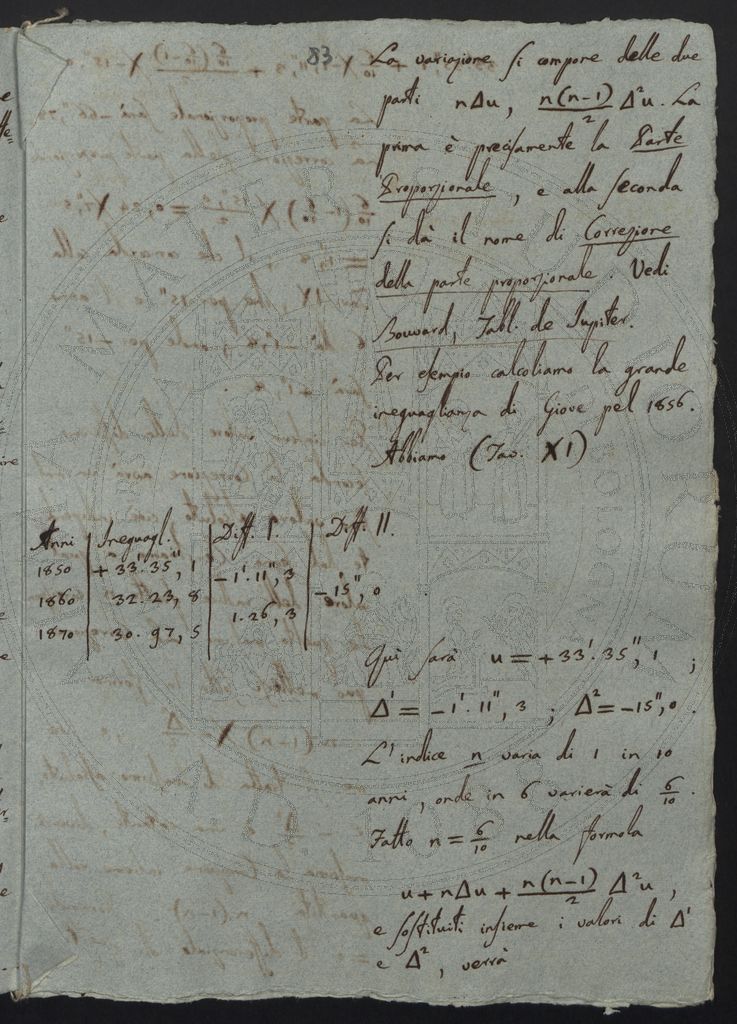 83
La variazione si compone delle due
parti nΔu, n(n-1)/2 Δ²u. La
prima è precisamente la Parte
Proporzionale, e alla seconda
si dà il nome di Correzione
della parte proporzionale. Vedi
Bouvard, Tabl. de Jupiter.
Per esempio calcoliamo la grande
ineguaglianza di Giove pel 1856.
Abbiamo (Tav. XI)
Anni | Ineguagl. | Diff. I. | Diff. II.
1850 | +33'.35",1 | -1'.11",3 | -15",0
1860 | 32.23,8 | 1.26,3
1870 | 30.97,5
Quì sarà u=+33'.35",1;
Δ'=-1'.11",3; Δ²=-15",0.
L'indice n varia di 1 in 10
anni, onde in 6 varierà di 6/10.
Fatto n=6/10 nella formola
u+nΔu+n(n-1)/2 Δ²u,
e sostituiti insieme i valori di Δ'
e Δ², verrà